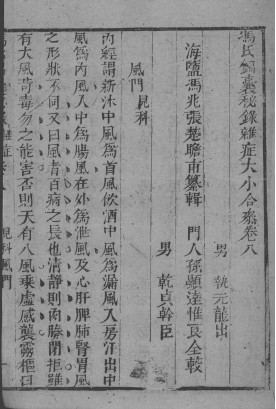 馮氏錦囊秘錄雜症大小合參卷八
海鹽馮兆張楚瞻甫纂輯
門人孫顯達惟良仝較
男 乾元龍田
男 乾貞幹臣
風門兒科
內經謂新沐中風為首風飲酒中風為漏風入房汗出中
風為內風入中為腸風在外為泄風及心肝脾肺腎胃風
之形狀不同又曰風者百病之長也清靜則肉腠閉拒雖
有大風苛毒勿之能害否則天有八風乘虛感襲靈樞曰
兒科風門